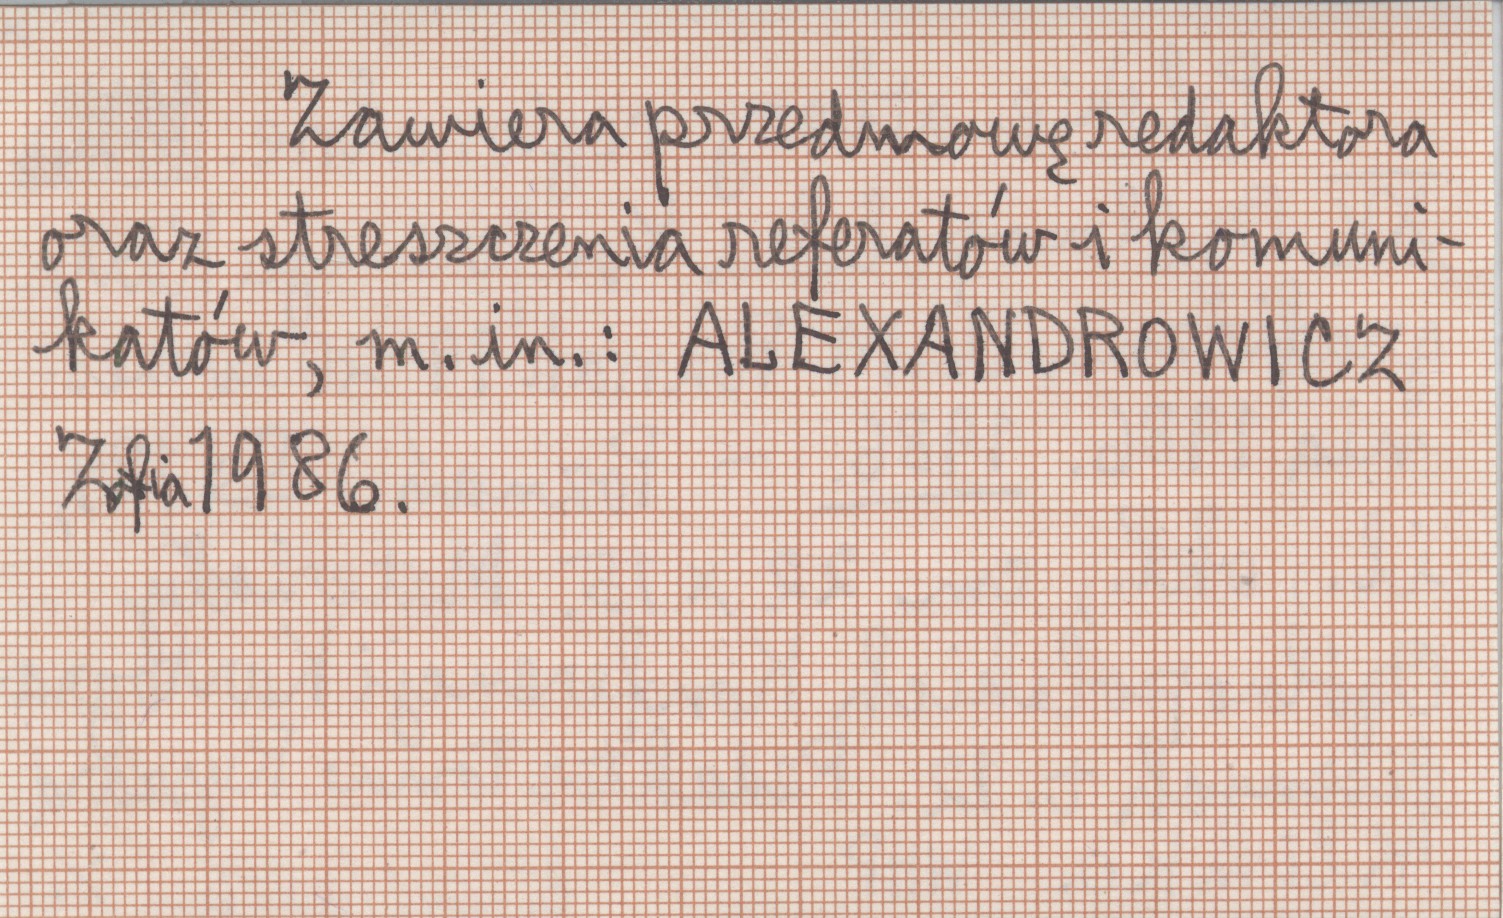 Zawiera przedmowę redaktora
oraz streszczenia referatów i komuni-
katów, m. in.: ALEXANDROWICZ
Zofia 1986.